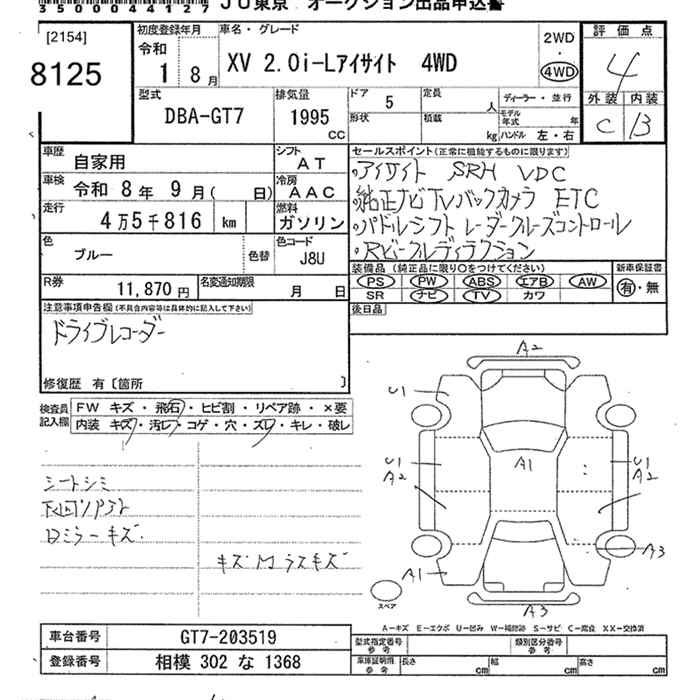 35000044127 JU東京 オークション出品申込書
[2154]
8125
初度登録年月
令和
1 8月
車名・グレード
XV 2.0i-Lアイサイト 4WD
2WD
・
4WD
評価点
4
外装 内装
C B
型式
DBA-GT7
排気量
1995
CC
ドア 5
形状
定員 人
積載 kg
ディーラー・並行
モデル年式 年
ハンドル 左・右
車歴 自家用
シフト AT
車検 令和 8年 9月( 日)
冷房 AAC
走行 4万5千816 km
燃料 ガソリン
色 ブルー 色替
色コード J8U
R券 11,870円
名変通知期限 月 日
セールスポイント(正常に機能するものに限ります)
・アイサイト SRH VDC
・純正ナビTVバックカメラ ETC
・パドルシフト レーダークルーズコントロール
・Rビークルディテクション
装備品(純正品に限り○をつけてください)
PS PW ABS エアB AW
SR ナビ TV カワ
新車保証書
有・無
後日品
注意事項申告欄(不具合内容等は具体的に記入して下さい)
ドライブレコーダー
修復歴 有〔箇所 〕
検査員記入欄
FW キズ・飛石・ヒビ割・リペア跡・×要
内装 キズ・汚レ・コゲ・穴・ズレ・キレ・破レ
シートシミ
Dミラーキズ
A2
U1
A1
U1
A2
U1
A2
A1
A3
A3
スペア
A-キズ E-エクボ U-凹み W-補修跡 S-サビ C-腐食 XX-交換済
車台番号 GT7-203519
登録番号 相模 302 な 1368
型式指定番号
参考
類別区分番号
参考
車庫証明用
参考
長さ cm 幅 cm 高さ cm